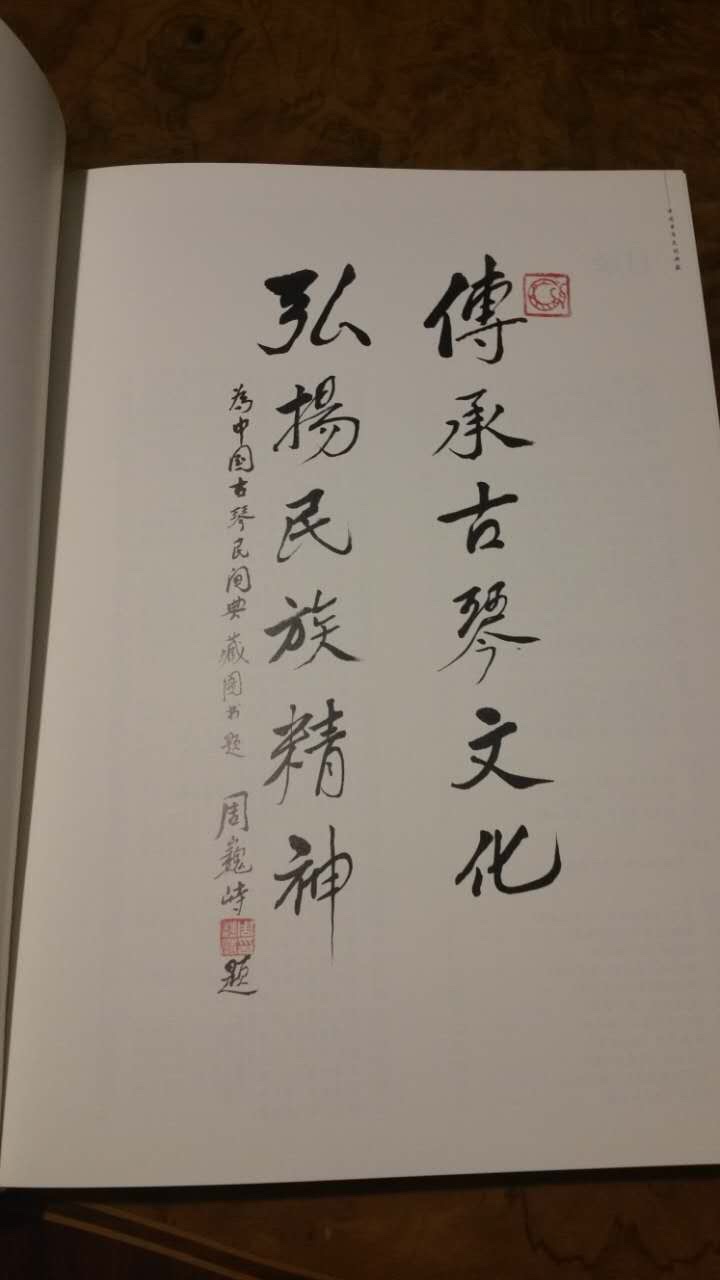 傳承古琴文化
弘揚民族精神
為中国古琴民间典藏图书题
周巍峙
题